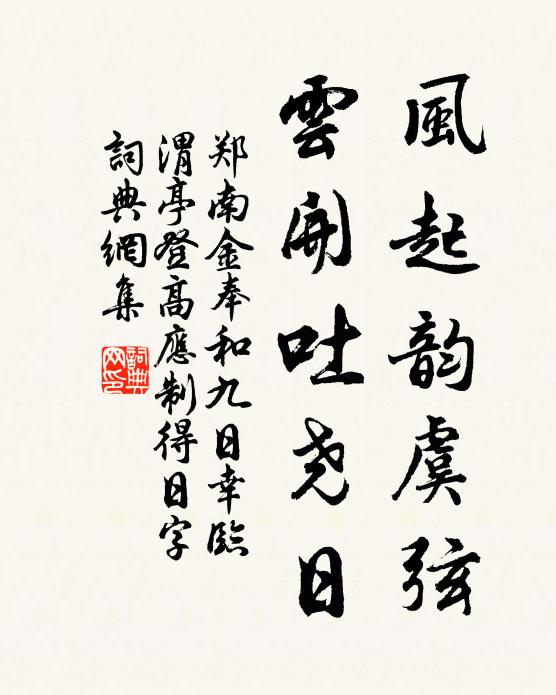 風起韵虞弦
雲開吐尧日
郑南金奉和九日幸臨
渭亭登高應制得日字
詞典網集
詞典网印